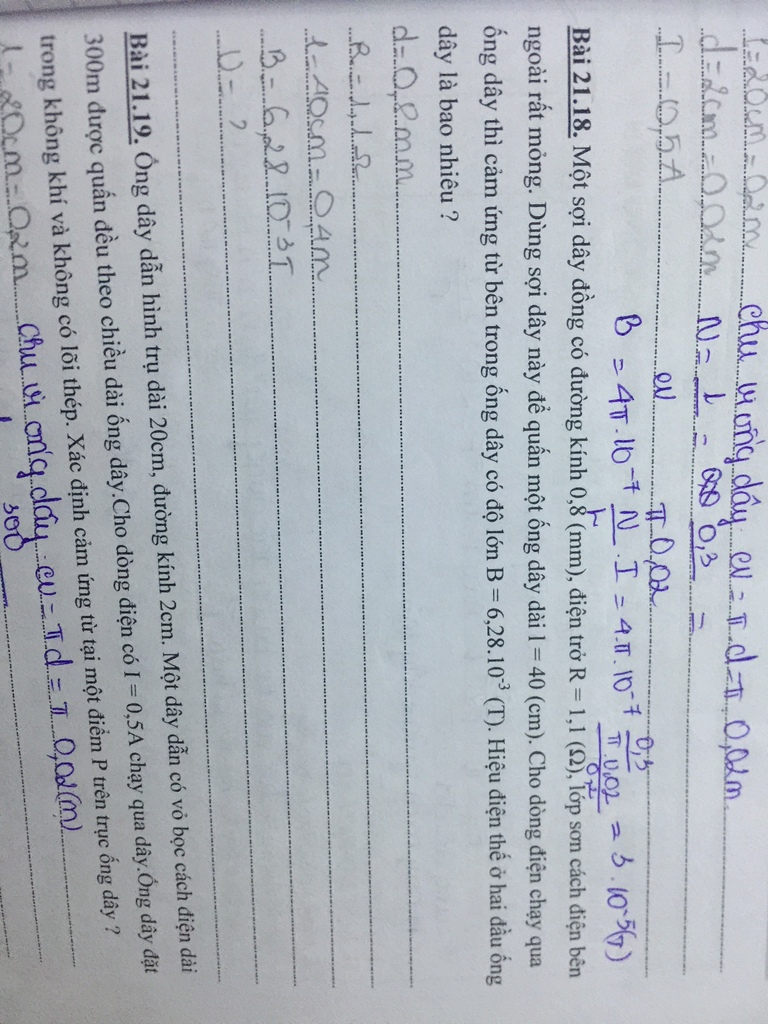 l = 20cm = 0,2m chu vi ống dây. cv = π d = π 0,02m
d = 2cm = 0,02m N = l = 0,3 =
I = 0,5A cv π 0,02
B = 4π.10⁻⁷ N . I = 4.π.10⁻⁷ 0,3 = 3.10⁻⁵(T)
π.0,02
Bài 21.18. Một sợi dây đồng có đường kính 0,8 (mm), điện trở R = 1,1 (Ω), lớp sơn cách điện bên
ngoài rất mỏng. Dùng sợi dây này để quấn một ống dây dài l = 40 (cm). Cho dòng điện chạy qua
ống dây thì cảm ứng từ bên trong ống dây có độ lớn B = 6,28.10⁻³ (T). Hiệu điện thế ở hai đầu ống
dây là bao nhiêu ?
d = 0,8mm
R = 1,1Ω
l = 40cm = 0,4m
B = 6,28.10⁻³T
U = ?
Bài 21.19. Ống dây dẫn hình trụ dài 20cm, đường kính 2cm. Một dây dẫn có vỏ bọc cách điện dài
300m được quấn đều theo chiều dài ống dây.Cho dòng điện có I = 0,5A chạy qua dây.Ống dây đặt
trong không khí và không có lõi thép. Xác định cảm ứng từ tại một điểm P trên trục ống dây ?
l = 20cm = 0,2m chu vi ống dây. cv = π d = π 0,02(m)
300